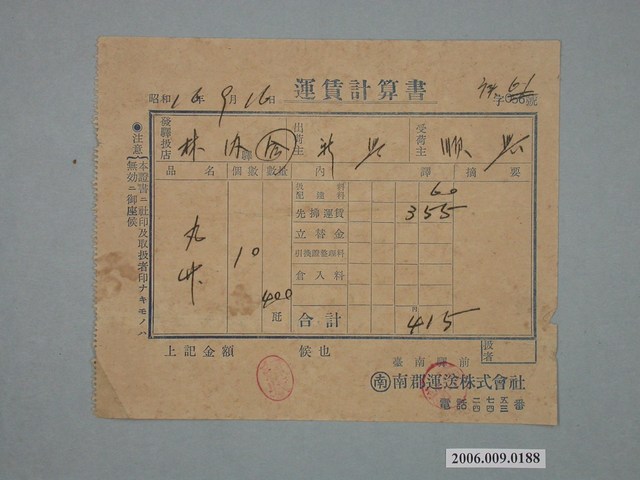 運賃計算書
字 61 號
昭和16年9月16日
發驛扱店 林內驛
出荷主 新興
受荷主 順興
品名 個數 數量 內譯 摘要
配達料 60
先拂運賃 355
立替金
引換證整理料
倉入料
丸竹 10 400 瓩
合計 円 415
上記金額 候也
扱者
臺南驛前
南 南郡運送株式會社
電話 二四 七四 五三 番
◉注意 本證書ニ社印及取扱者印ナキモノハ
無効ニ御座候
2006.009.0188